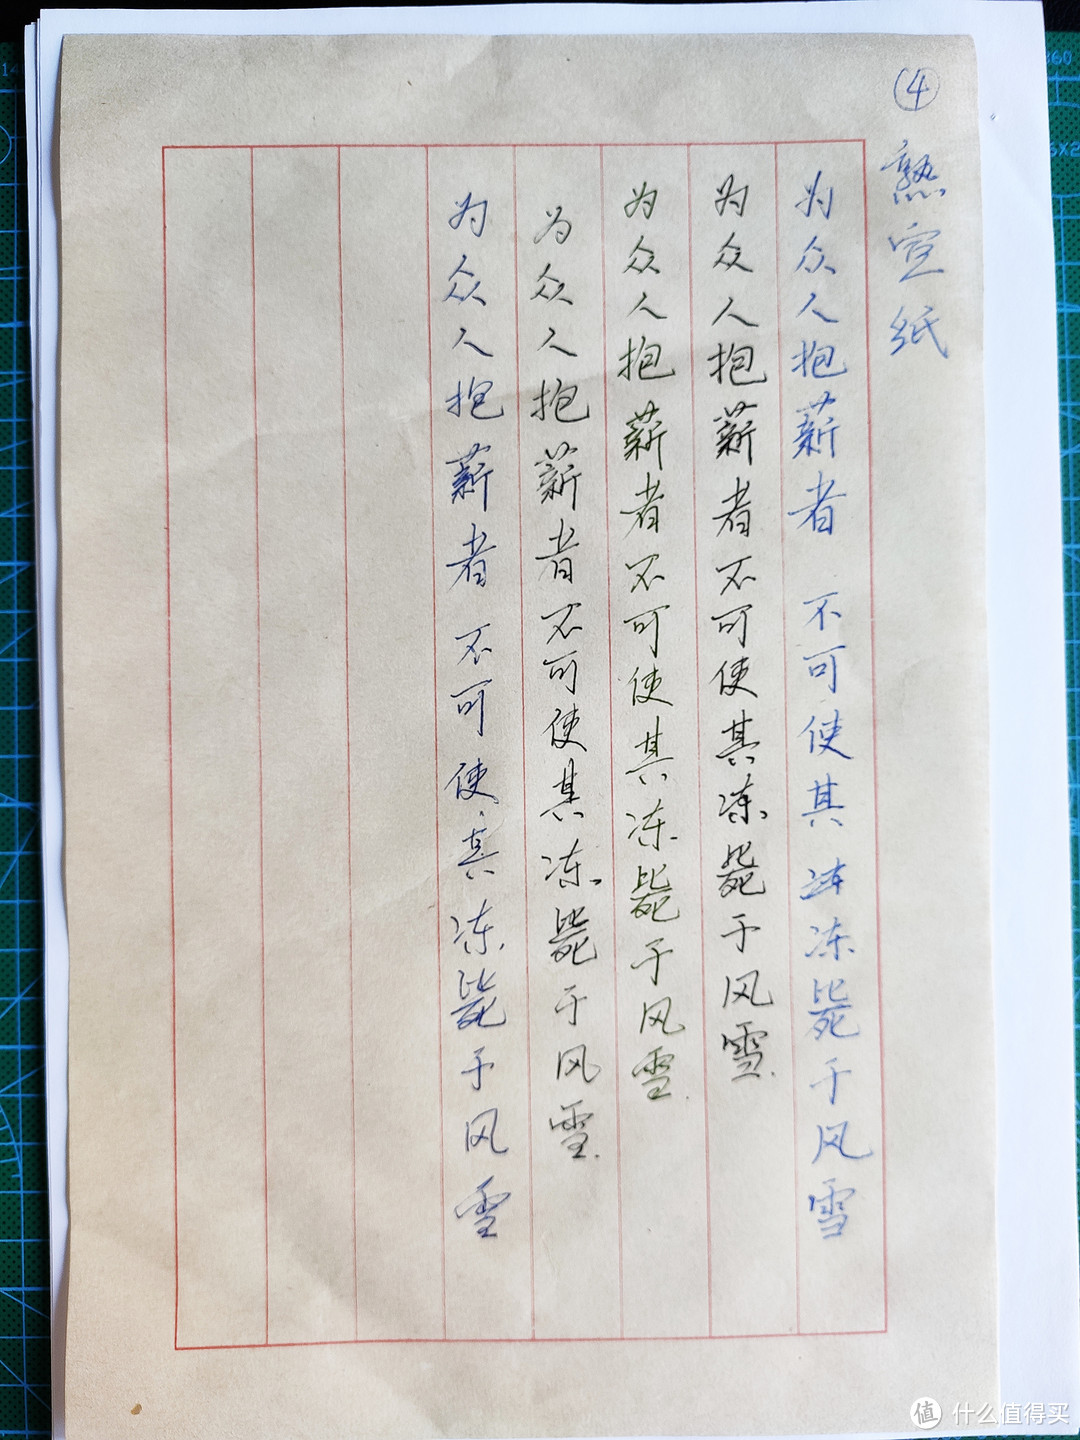 ④
熟宣纸
为众人抱薪者 不可使其冻冻毙于风雪
为众人抱薪者不可使其冻毙于风雪.
为众人抱薪者不可使其冻毙于风雪.
为众人抱薪者不可使其冻毙于风雪.
为众人抱薪者 不可使其冻毙于风雪
值 什么值得买